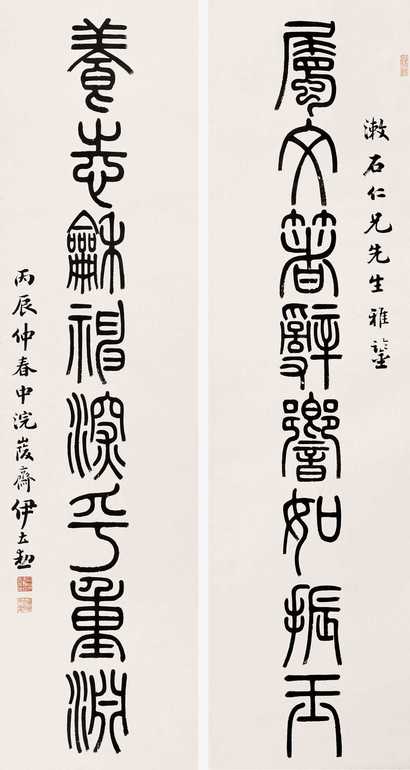 漱石仁兄先生雅鑒
屬文箸辭響如振玉
養志龢神深乎重淵
丙辰仲春中浣峻齋伊立勳